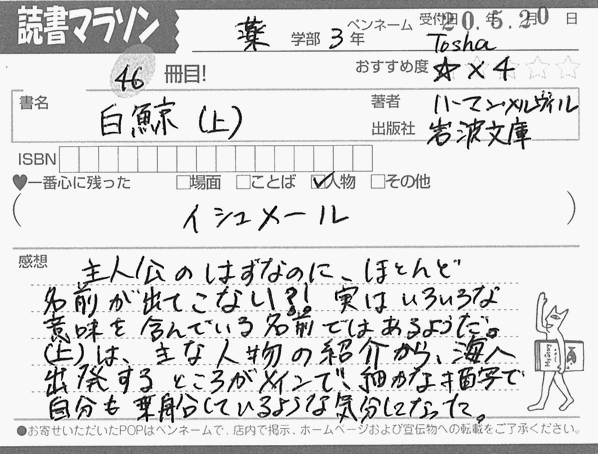 読書マラソン
薬 学部 3 年
ペンネーム Tosha
受付日 20年5月20日
46 冊目!
おすすめ度 ☆×4 ☆☆
書名 白鯨(上)
著者 ハーマン・メルヴィル
出版社 岩波文庫
ISBN
♥一番心に残った □場面 □ことば ☑人物 □その他
( イシュメール )
感想
主人公のはずなのに、ほとんど
名前が出てこない?! 実はいろいろな
意味を含んでいる名前ではあるようだ。
(上)は、主な人物の紹介から、海へ
出発するところがメインで、細かな描写で
自分も乗船しているような気分になった。
●お寄せいただいたPOPはペンネームで、店内で掲示、ホームページおよび宣伝物への転載をご了承ください。